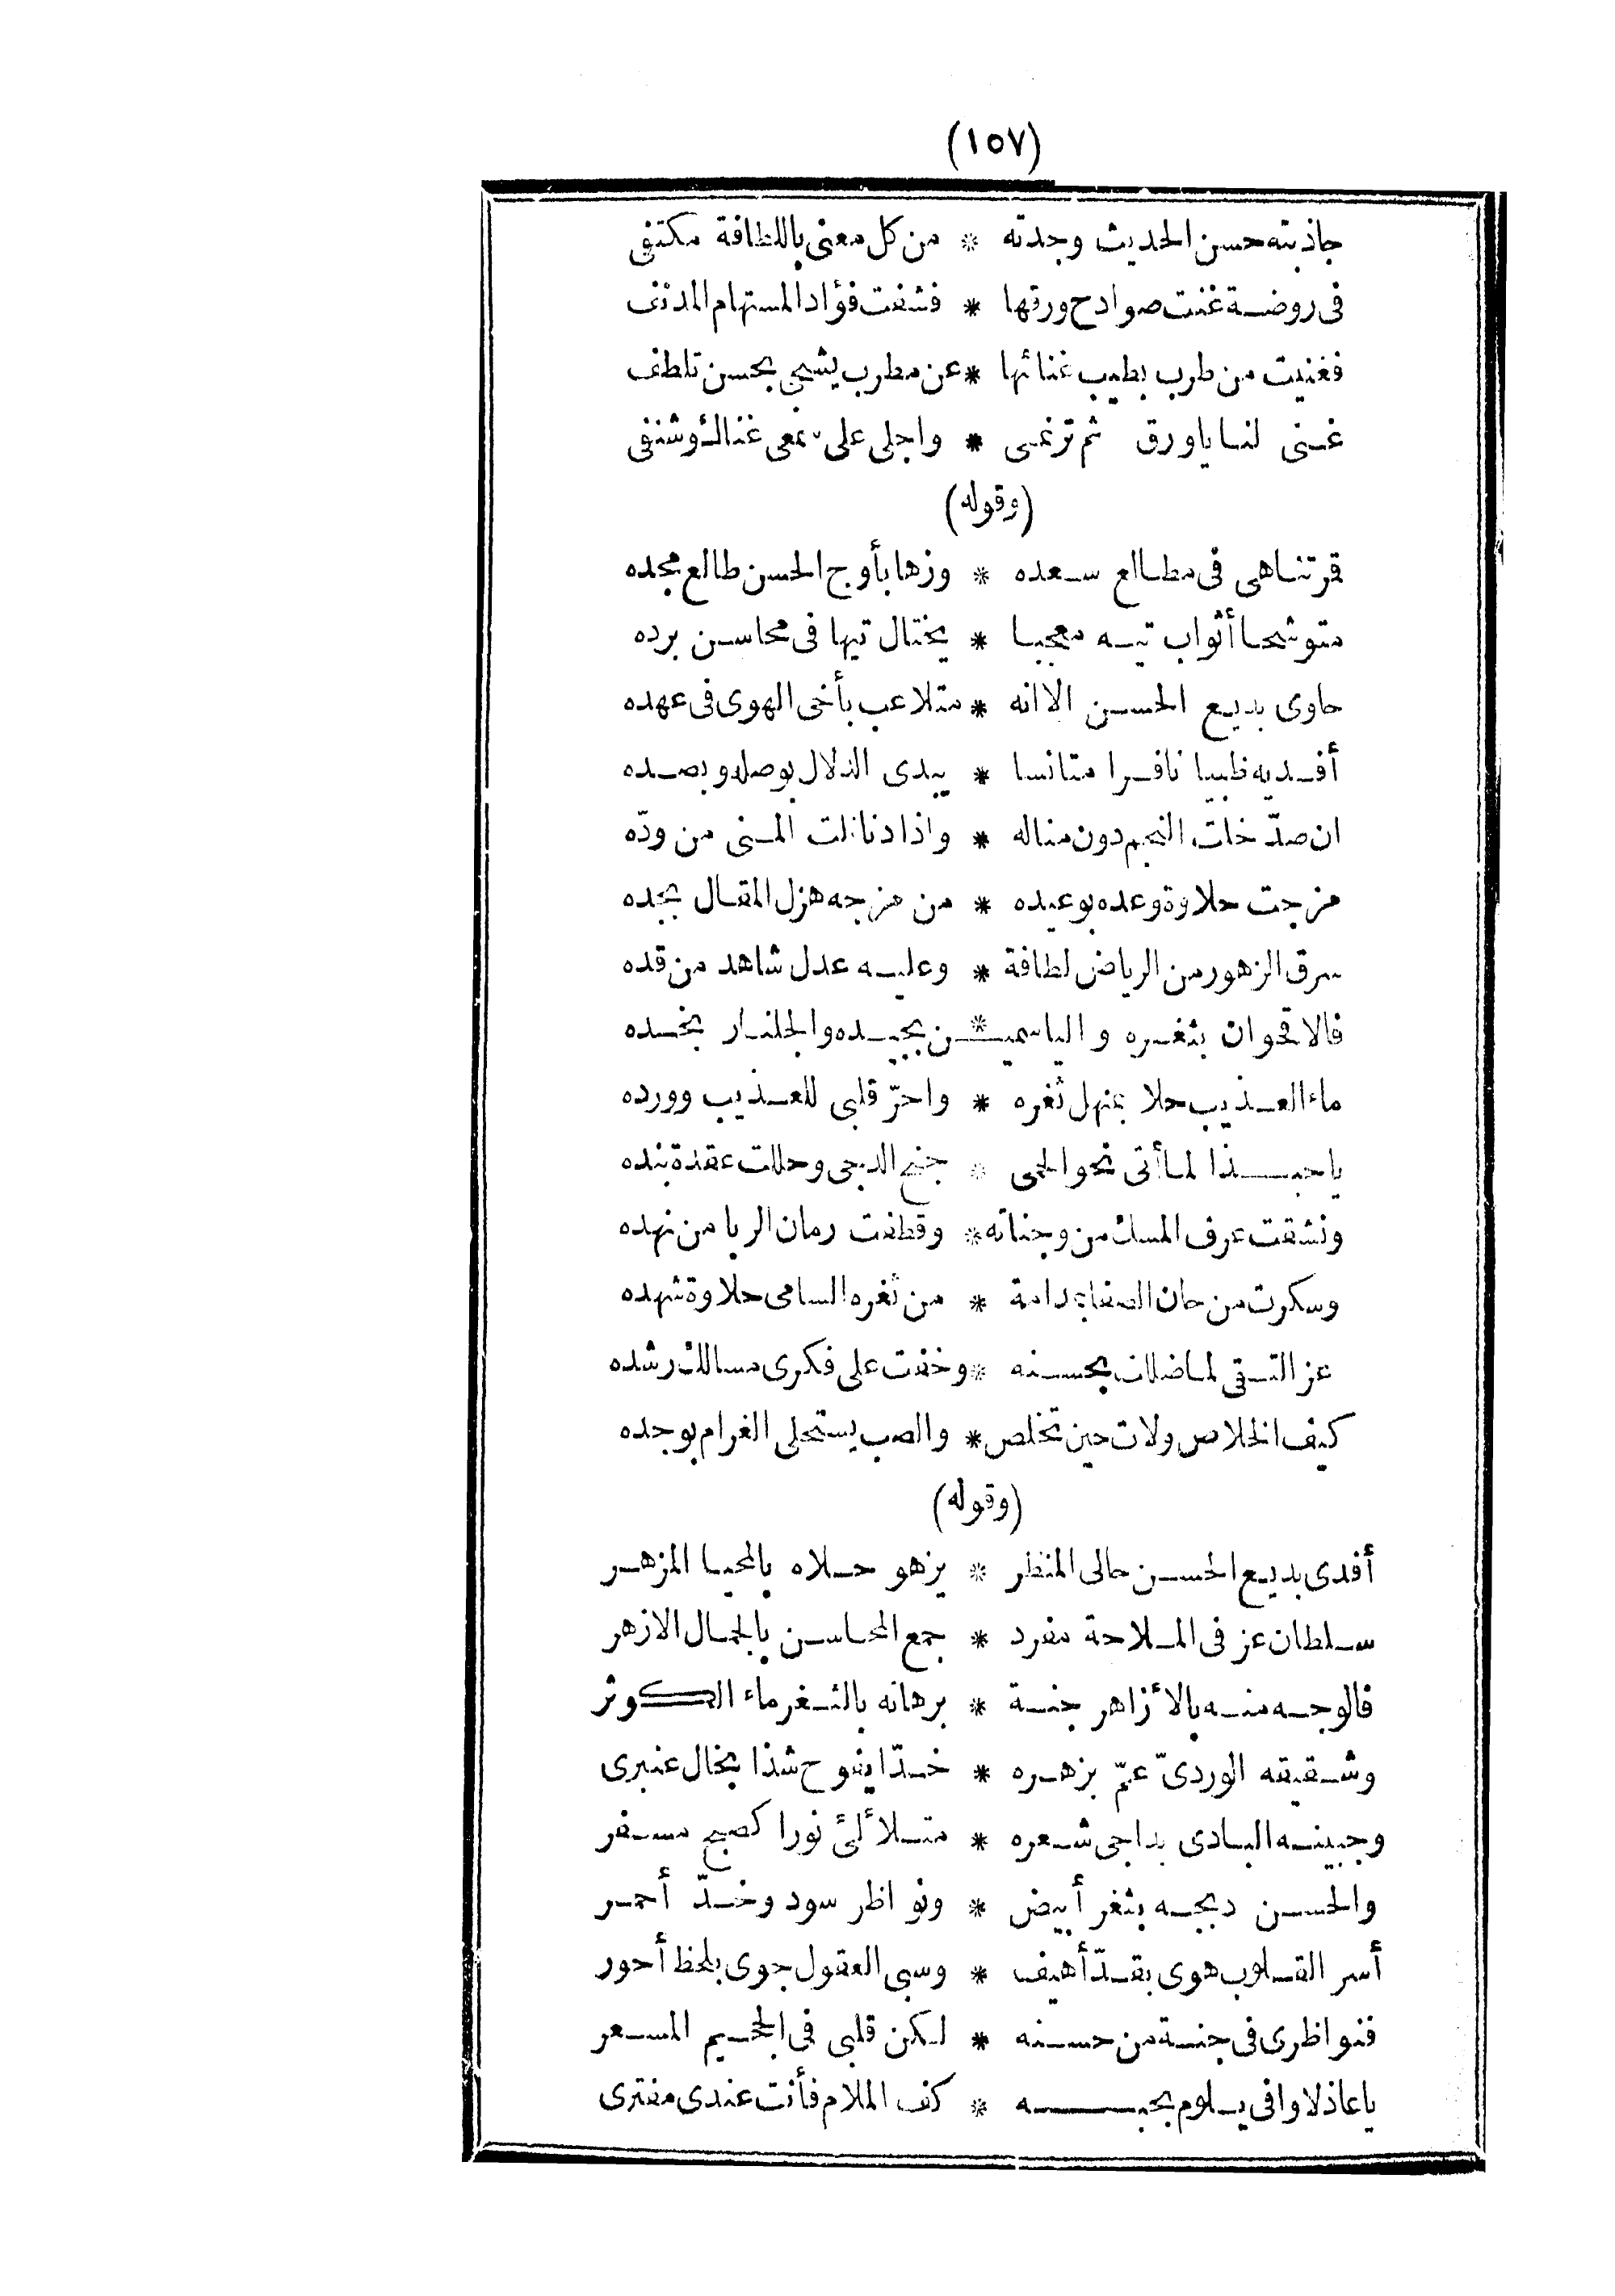 (١٥٧)
جاذبته حسن الحديث وجدته * من كل معنى باللطافة مكتفى
فى روضة غنت صوادح ورقها * فشفت فؤاد المستهام المدنف
فغنيت من طرب بطيب غنائها * عن مطرب يشجى بحسن تلطف
غنى لنا يا ورق ثم ترنمى * واجلى على سمعى غناك وشنفى
(وقوله)
قمر تناهى فى مطالع سعده * وزها بأوج الحسن طالع مجده
متوشحا أثواب تيه معجبا * يختال تيها فى محاسن برده
حاوى بديع الحسن الا انه * متلاعب بأخى الهوى فى عهده
أفديه ظبيا نافرا متانسا * يبدى الدلال بوصله وبصده
ان صدّ خلت النجم دون مناله * واذا دنا نلت المنى من ودّه
مزجت حلاوة وعده بوعيده * من مزجه هزل المقال بجده
سرق الزهور من الرياض لطافة * وعليه عدل شاهد من قده
فالاقحوان بثغره والياسميـ * ـن بجيده والجلنار بخده
ماء العذيب حلا بمنهل ثغره * واحرّ قلبى للعذيب وورده
يا حبذا لما أتى نحو الحمى * جنح الدجى وحللت عقدة بنده
ونشقت عرف المسك من وجناته * وقطفت رمان الربا من نهده
وسكرت من حان الصفا بمدامة * من ثغره السامى حلاوة شهده
عز التقى لما ضللت بحسنه * وخفت على فكرى مسالك رشده
كيف الخلاص ولات حين تخلص * والصب يستحلى الغرام بوجده
(وقوله)
أفدى بديع الحسن حالى المنظر * يزهو حلاه بالمحيا المزهر
سلطان عز فى الملاحة مفرد * جمع المحاسن بالجمال الازهر
فالوجه منه بالأزاهر جنة * برهانه بالثغر ماء الكوثر
وشقيقه الوردىّ عمّ بزهره * خدّا يفوح شذا بخال عنبرى
وجبينه البادى بداجى شعره * متلألئ نورا كصبح مسفر
والحسن دبجه بثغر أبيض * ونواظر سود وخدّ أحمر
أسر القلوب هوى بقدّ أهيف * وسبى العقول جوى بلحظ أحور
فنواظرى فى جنة من حسنه * لكن قلبى فى الجحيم المسعر
يا عاذلا وافى يلوم بحبه * كف الملام فأنت عندى مفترى